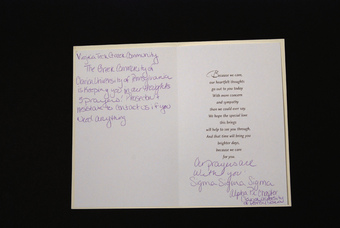 Virginia Tech Greek Community
The Greek Community @
Clarion University of Pennsylvania
is keeping you in our thoughts
& prayers! Please don't
hesitate to contact us if you
need anything
Because we care,
our heartfelt thoughts
go out to you today
With more concern
and sympathy
than we could ever say.
We hope the special love
this brings
will help to see you through,
And that time will bring you
brighter days,
because we care
for you.
Our prayers are
with you
Sigma Sigma Sigma